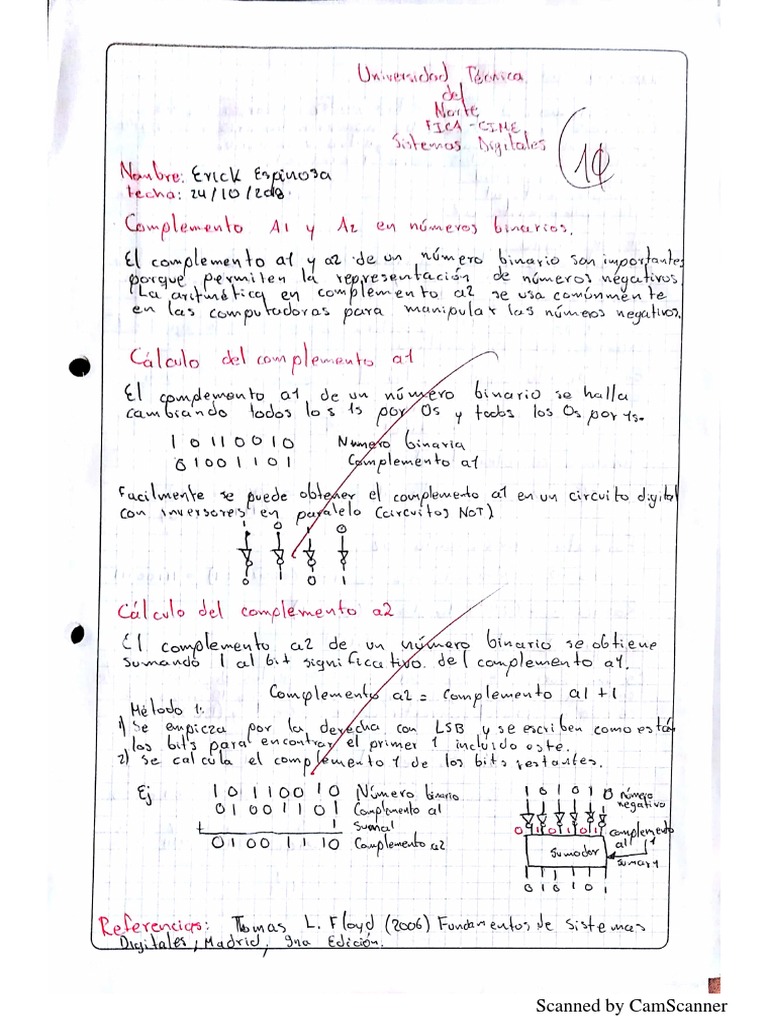 Universidad Técnica
del
Norte
FICA - CIME
Sistemas Digitales
10
Nombre: Erick Espinosa
Fecha: 24/10/2018
Complemento A1 y A2 en números binarios.
El complemento a1 y a2 de un número binario son importantes
porque permiten la representación de números negativos
La aritmética en complemento a2 se usa comúnmente
en las computadoras para manipular las números negativos.
Cálculo del complemento a1
El complemento a1 de un número binario se halla
cambiando todos los 1s por 0s y todos los 0s por 1s.
1 0 1 1 0 0 1 0 Numero binaria
0 1 0 0 1 1 0 1 Complemento a1
Facilmente se puede obtener el complemento a1 en un circuito digital
con inversores en paralelo (circuitos NOT)
1 0 1 0
0 1 0 1
Cálculo del complemento a2
El complemento a2 de un número binario se obtiene
sumando 1 al bit significativo del complemento a1.
Complemento a2 = Complemento a1 + 1
Método 1:
1) Se empieza por la derecha con LSB y se escriben como están
los bits para encontrar el primer 1 incluido este.
2) Se calcula el complemento 1 de los bits restantes.
Ej 1 0 1 1 0 0 1 0 Número binario
0 1 0 0 1 1 0 1 Complemento a1
+ 1 suma1
0 1 0 0 1 1 1 0 Complemento a2
1 0 1 0 1 0 número
negativo
0 1 0 1 0 1 complemento
a1
Sumador
1
sumar 1
0 1 0 1 0 1
Referencias: Thomas L. Floyd (2006) Fundamentos de Sistemas
Digitales, Madrid, 9na Edición.
Scanned by CamScanner